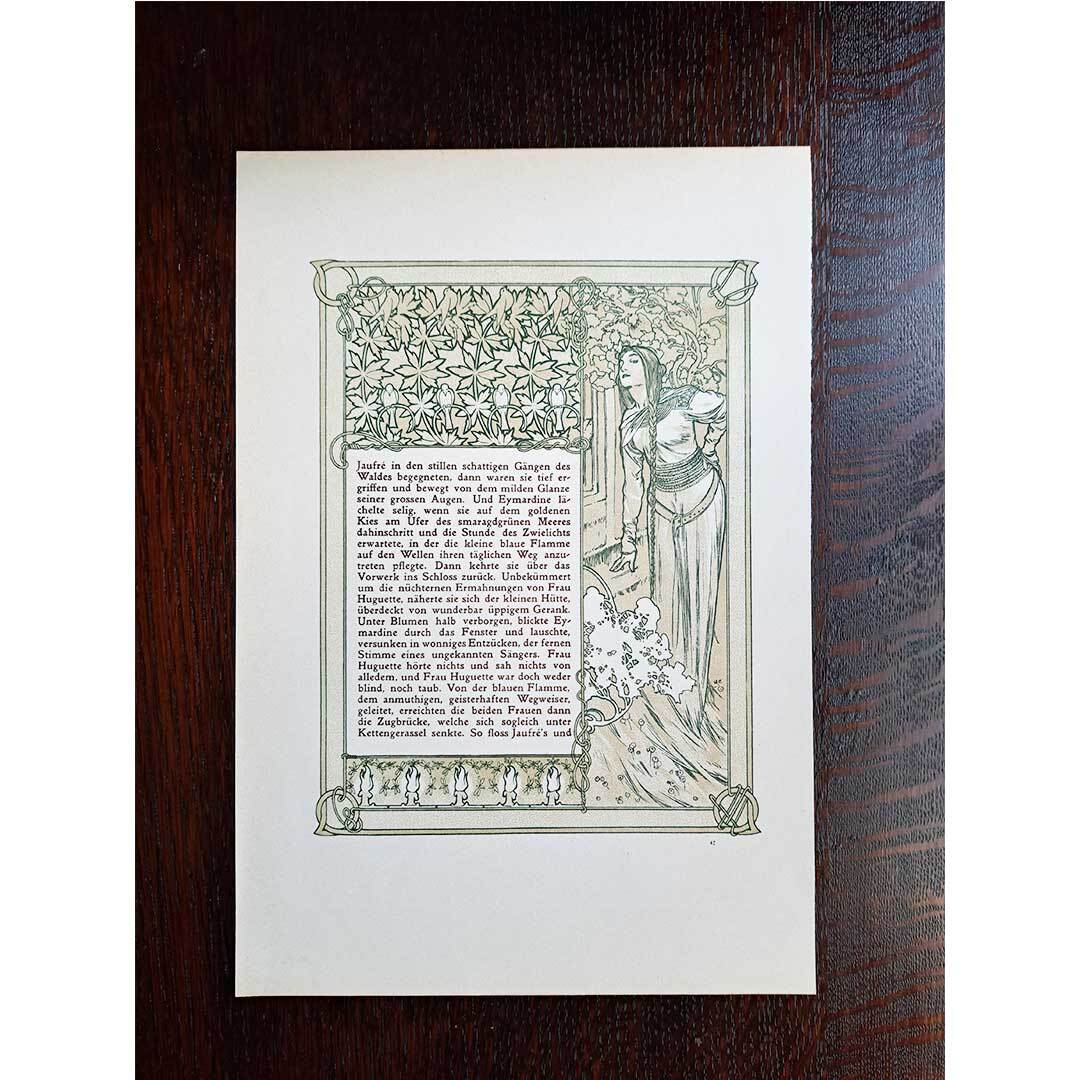 Jaufré in den stillen schattigen Gängen des
Waldes begegneten, dann waren sie tief er-
griffen und bewegt von dem milden Glanze
seiner grossen Augen. Und Eymardine lä-
chelte selig, wenn sie auf dem goldenen
Kies am Ufer des smaragdgrünen Meeres
dahinschritt und die Stunde des Zwielichts
erwartete, in der die kleine blaue Flamme
auf den Wellen ihren täglichen Weg anzu-
treten pflegte. Dann kehrte sie über das
Vorwerk ins Schloss zurück. Unbekümmert
um die nüchternen Ermahnungen von Frau
Huguette, näherte sie sich der kleinen Hütte,
überdeckt von wunderbar üppigem Gerank.
Unter Blumen halb verborgen, blickte Ey-
mardine durch das Fenster und lauschte,
versunken in wonniges Entzücken, der fernen
Stimme eines ungekannten Sängers. Frau
Huguette hörte nichts und sah nichts von
alledem, und Frau Huguette war doch weder
blind, noch taub. Von der blauen Flamme,
dem anmuthigen, geisterhaften Wegweiser,
geleitet, erreichten die beiden Frauen dann
die Zugbrücke, welche sich sogleich unter
Kettengerassel senkte. So floss Jaufré's und